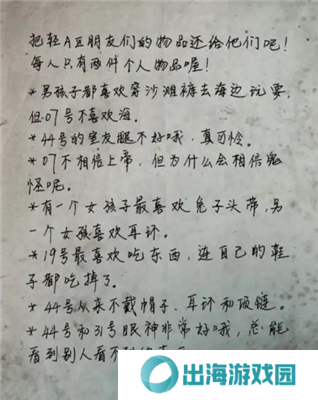 把轻A区朋友们的物品还给他们吧!
每人只有两件个人物品喔!
*男孩子都喜欢穿沙滩裤去海边玩耍,
但07号不喜欢海。
*44号的室友腿不好哦,真可怜。
*07不相信上帝,但为什么会相信鬼
怪呢。
*有一个女孩子最喜欢兔子头带,另
一个女孩喜欢耳环。
*19号最喜欢吃东西,连自己的鞋
子都吃掉了。
*44号从来不戴帽子、耳环和项链。
*44号和31号眼神非常好哦,总能
看到别人看不到
出海游戏园